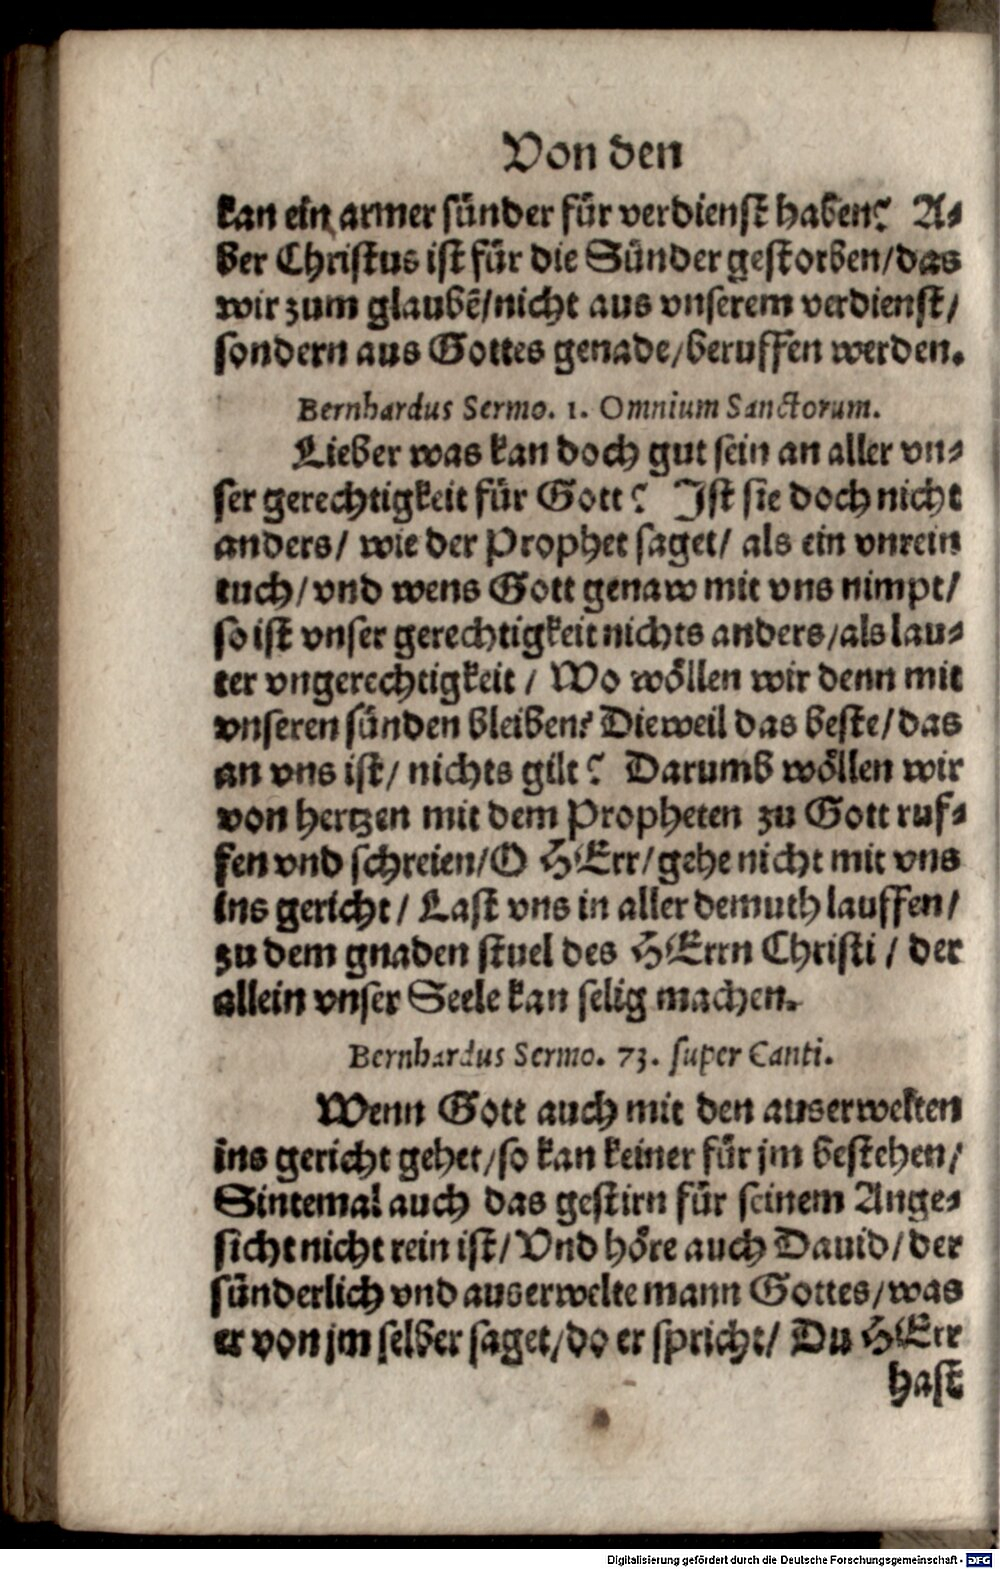 Von den
kan ein armer sünder für verdienst haben? A⸗
ber Christus ist für die Sünder gestorben/das
wir zum glaubẽ/nicht aus vnserem verdienst/
sondern aus Gottes genade/beruffen werden.
Bernhardus Sermo. 1. Omnium Sanctorum.
Lieber was kan doch gut sein an aller vn⸗
ser gerechtigkeit für Gott? Ist sie doch nicht
anders/ wie der Prophet saget/ als ein vnrein
tuch/ vnd wens Gott genaw mit vns nimpt/
so ist vnser gerechtigkeit nichts anders/als lau⸗
ter vngerechtigkeit / Wo wöllen wir denn mit
vnseren sünden bleiben? Dieweil das beste/das
an vns ist/ nichts gilt? Darumb wöllen wir
von hertzen mit dem Propheten zu Gott ruf⸗
fen vnd schreien/O HErr/gehe nicht mit vns
ins gericht/ Last vns in aller demuth lauffen/
zu dem gnaden stuel des HErrn Christi / der
allein vnser Seele kan selig machen.
Bernhardus Sermo. 73. super Canti.
Wenn Gott auch mit den auserwelten
ins gericht gehet/so kan keiner für jm bestehen/
Sintemal auch das gestirn für seinem Ange⸗
sicht nicht rein ist/ Vnd höre auch Dauid/der
sünderlich vnd auserwelte mann Gottes/was
er von jm selber saget/do er spricht/ Du HErr
hast
Digitalisierung gefördert durch die Deutsche Forschungsgemeinschaft - DFG